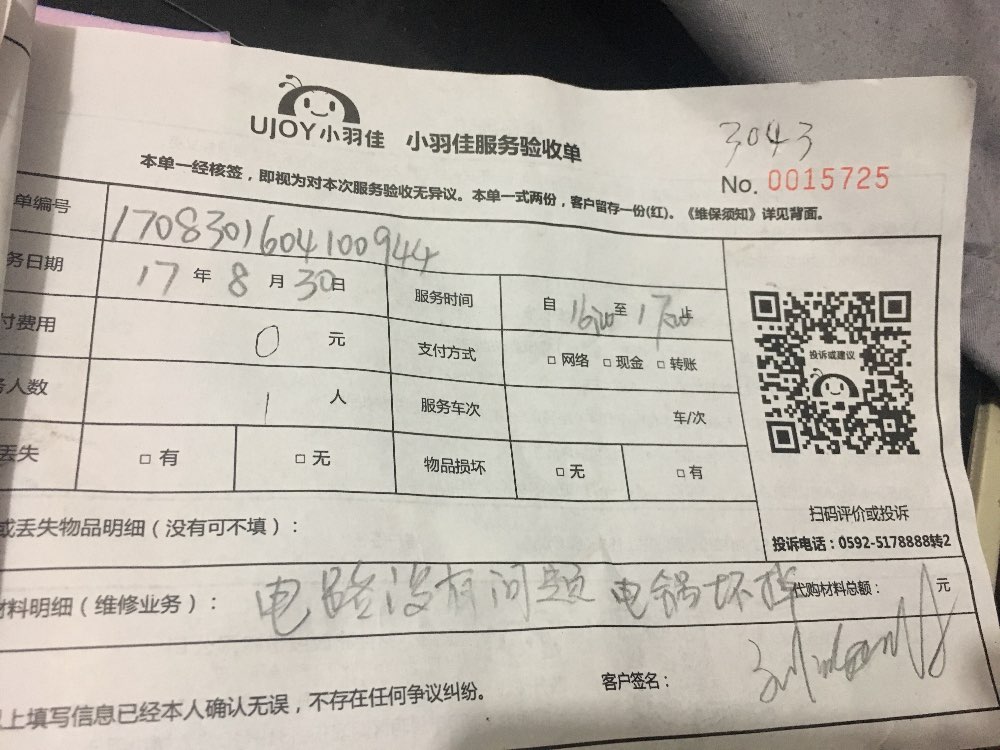 UJOY小羽佳 小羽佳服务验收单
3043
No. 0015725
本单一经核签，即视为对本次服务验收无异议。本单一式两份，客户留存一份(红)。《维保须知》详见背面。
单编号 1708301604100944
务日期 17 年 8 月 30 日 服务时间 自 16:00 至 17:00 止
付费用 0 元 支付方式 □ 网络 □ 现金 □ 转账
务人数 1 人 服务车次 车/次
丢失 □ 有 □ 无 物品损坏 □ 无 □ 有
投诉或建议
扫码评价或投诉
投诉电话：0592-5178888转2
或丢失物品明细（没有可不填）：
材料明细（维修业务）： 电路没有问题 电锅坏掉 代购材料总额： 元
客户签名：
以上填写信息已经本人确认无误，不存在任何争议纠纷。